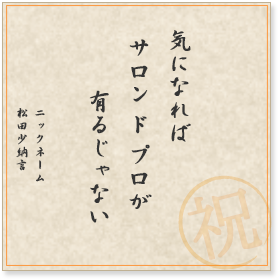 気になれば
サロンドプロが
有るじゃない
ニックネーム
松田少納言
祝